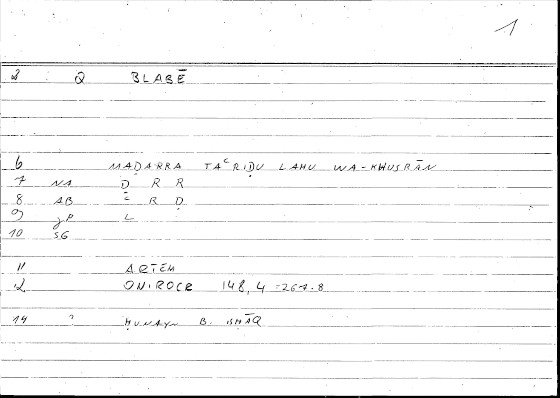 1
2 Q BLABĒ
6 MAḌARRA TAʿRIḌU LAHU WA-KHUSRĀN
7 NA Ḍ R R
8 AB ʿ R Ḍ
9 JP L
10 SG
11 ARTEM
12 ONIROCR 148,4 = 267.8
14 ḤUNAYN B. ISḤĀQ